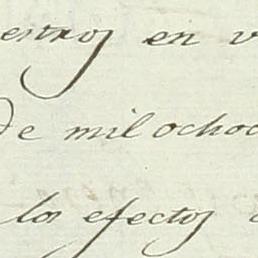 estros en v
de mil ochoc
los efectos